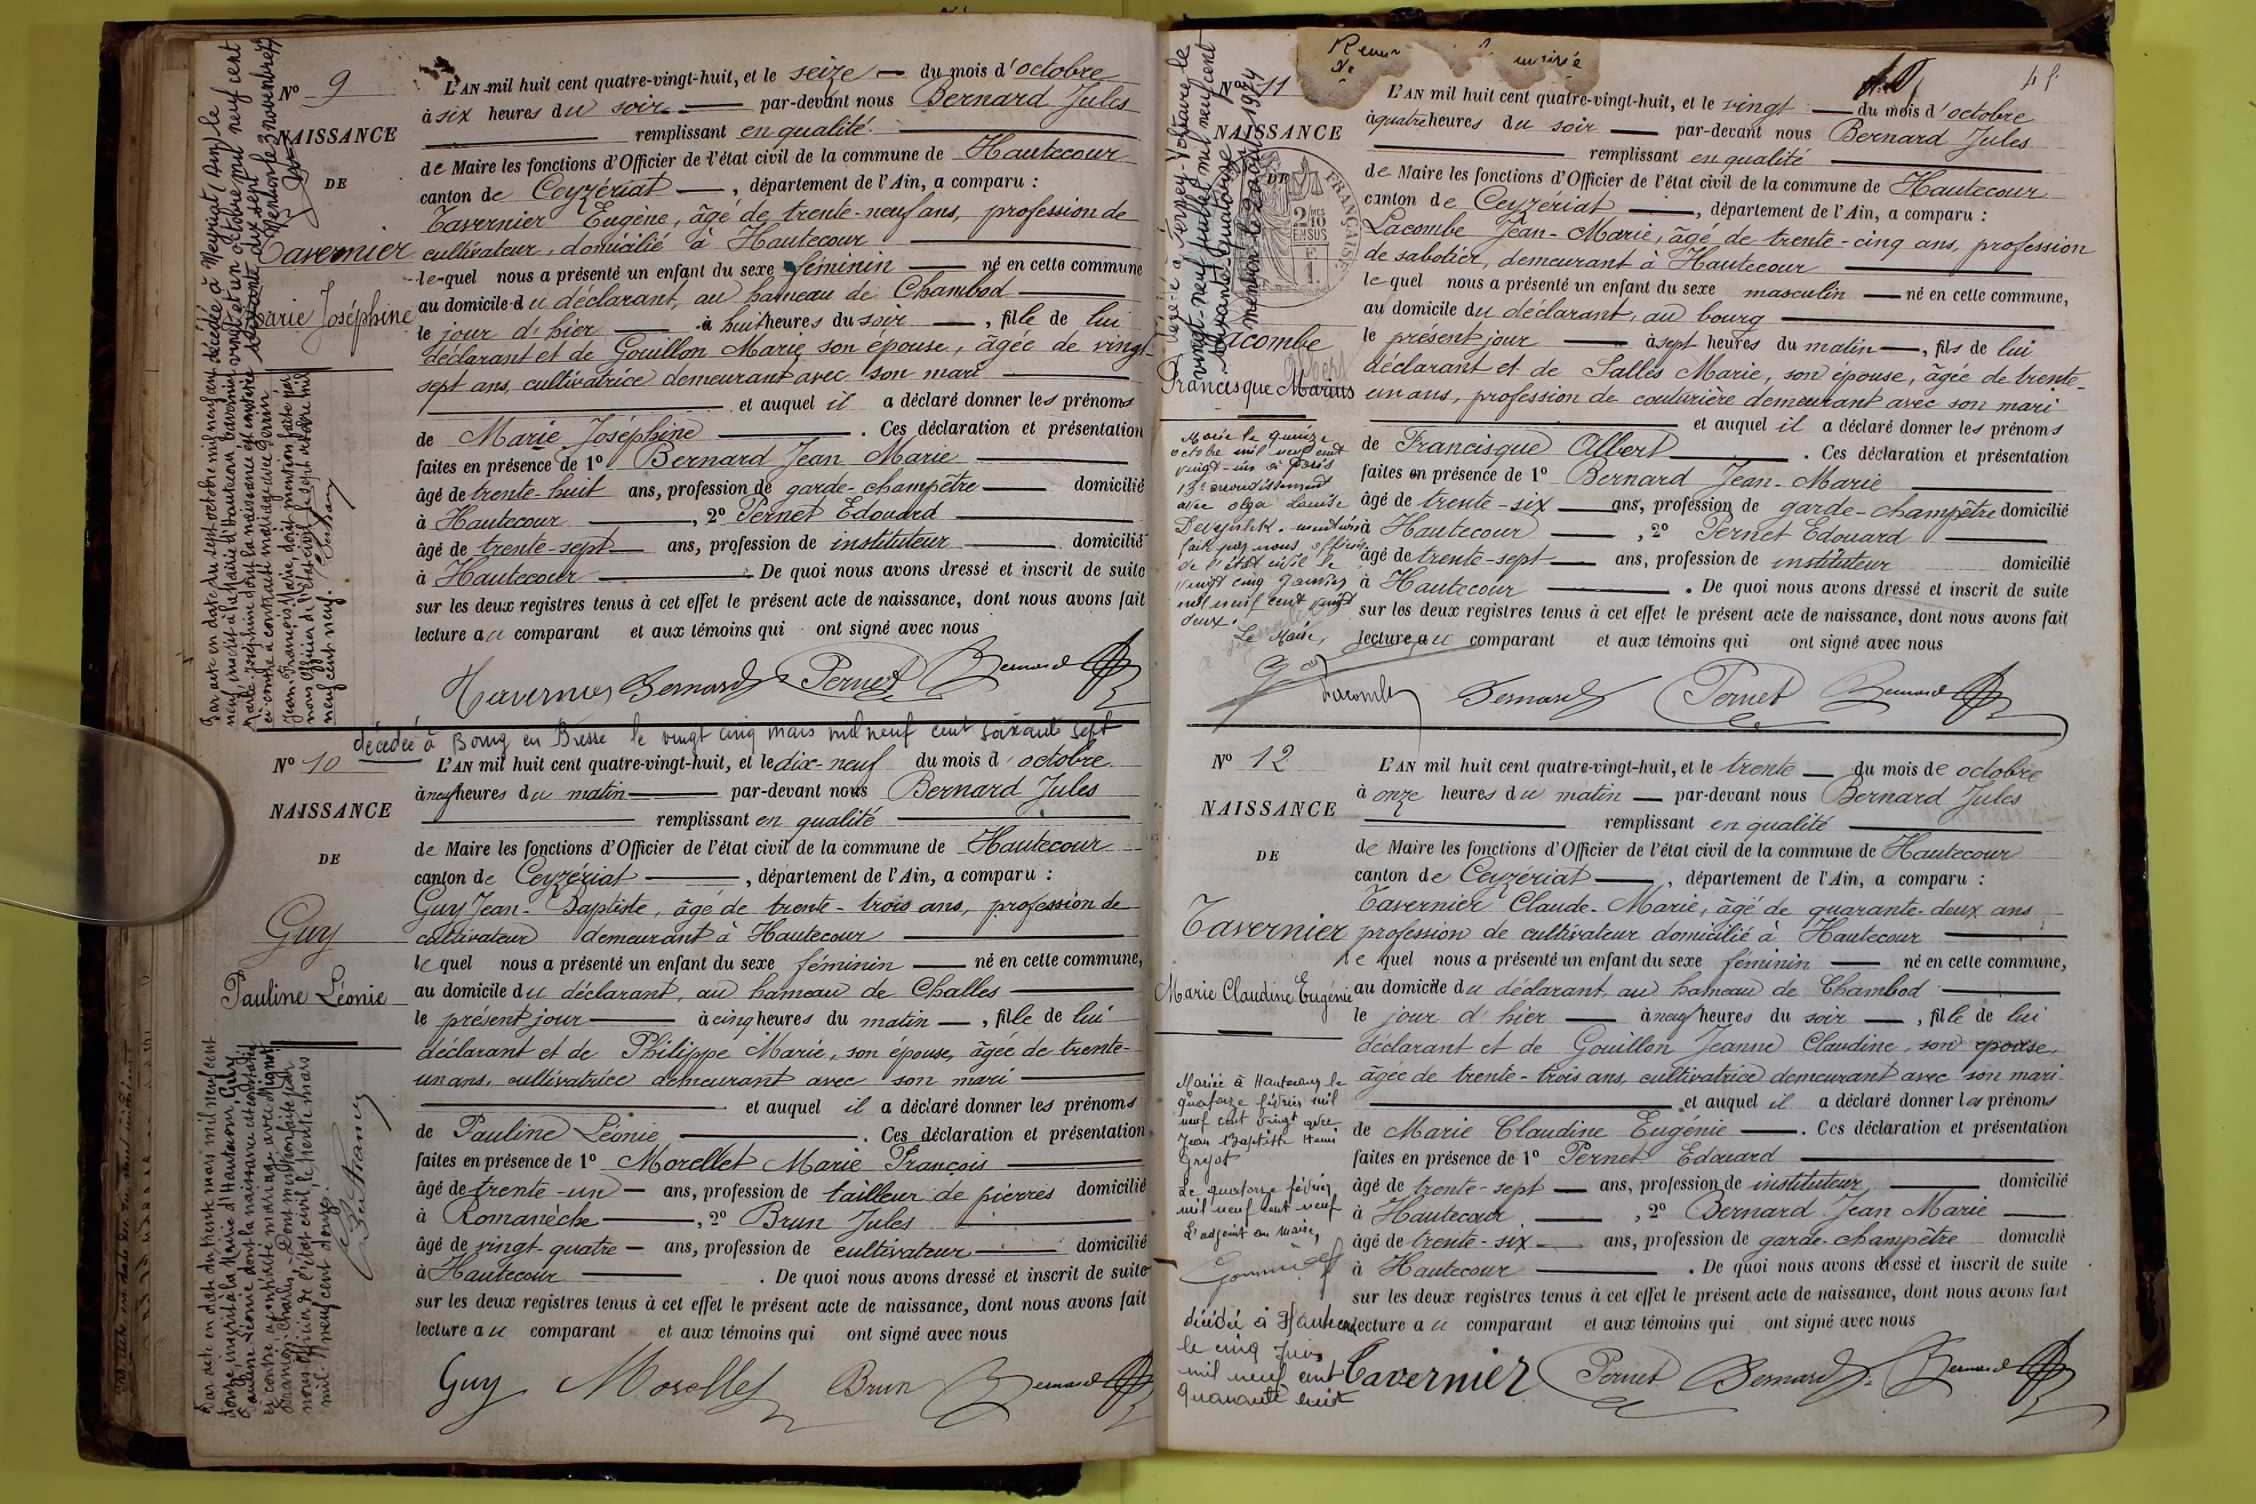 N° 9
NAISSANCE
DE
Tavernier
Marie Joséphine
L'AN mil huit cent quatre-vingt-huit, et le seize du mois d'octobre
à six heures du soir par-devant nous Bernard Jules
remplissant en qualité
de Maire les fonctions d'Officier de l'état civil de la commune de Hautecour
canton de Ceyzériat, département de l'Ain, a comparu :
Tavernier Eugène, âgé de trente-neuf ans, profession de
cultivateur, domicilié à Hautecour
lequel nous a présenté un enfant du sexe féminin né en cette commune
au domicile du déclarant, au hameau de Chambod
le jour d'hier à huit heures du soir, fille de lui
déclarant et de Gouillon Marie son épouse, âgée de vingt-
sept ans, cultivatrice demeurant avec son mari
et auquel il a déclaré donner les prénoms
de Marie Joséphine. Ces déclaration et présentation
faites en présence de 1° Bernard Jean Marie
âgé de trente-huit ans, profession de garde-champêtre domicilié
à Hautecour, 2° Pernet Edouard
âgé de trente-sept ans, profession de instituteur domicilié
à Hautecour. De quoi nous avons dressé et inscrit de suite
sur les deux registres tenus à cet effet le présent acte de naissance, dont nous avons fait
lecture au comparant et aux témoins qui ont signé avec nous
Tavernier Bernard Pernet Bernard
Par acte en date du sept octobre mil
neuf cent neuf inscrit à la Mairie d'Hautecour, Tavernier
Marie Joséphine dont la naissance est inscrite
ci-contre a contracté mariage avec Perrin
Jean François Marie, dont mention faite par
nous Officier de l'état civil, le sept octobre mil
neuf cent neuf.
décédée à Meyriat (Ain) le
vingt et un octobre mil neuf cent
soixante dix sept
Mention le 3 novembre
décédée à Bourg en Bresse le vingt cinq mars mil neuf cent soixante sept
N° 10
NAISSANCE
DE
Guy
Pauline Léonie
L'AN mil huit cent quatre-vingt-huit, et le dix-neuf du mois d'octobre
à neuf heures du matin par-devant nous Bernard Jules
remplissant en qualité
de Maire les fonctions d'Officier de l'état civil de la commune de Hautecour
canton de Ceyzériat, département de l'Ain, a comparu :
Guy Jean-Baptiste, âgé de trente-trois ans, profession de
cultivateur demeurant à Hautecour
lequel nous a présenté un enfant du sexe féminin né en cette commune,
au domicile du déclarant, au hameau de Challes
le présent jour à cinq heures du matin, fille de lui
déclarant et de Philippe Marie, son épouse, âgée de trente-
un ans, cultivatrice demeurant avec son mari
et auquel il a déclaré donner les prénoms
de Pauline Léonie. Ces déclaration et présentation
faites en présence de 1° Morellet Marie François
âgé de trente-un ans, profession de tailleur de pierres domicilié
à Romanèche, 2° Brun Jules
âgé de vingt-quatre ans, profession de cultivateur domicilié
à Hautecour. De quoi nous avons dressé et inscrit de suite
sur les deux registres tenus à cet effet le présent acte de naissance, dont nous avons fait
lecture au comparant et aux témoins qui ont signé avec nous
Guy Morellet Brun Bernard
Par acte en date du trente mars mil neuf cent
douze, inscrit à la Mairie d'Hautecour, Guy
Pauline Léonie dont la naissance est constatée
ci-contre, a contracté mariage avec Mignot
François Charles. Dont mention faite par
nous Officier de l'état civil, le trente mars
mil neuf cent douze.
N° 11
NAISSANCE
DE
Lacombe
Albert
Francisque Marius
FRANÇAISE
L'AN mil huit cent quatre-vingt-huit, et le vingt du mois d'octobre
à quatre heures du soir par-devant nous Bernard Jules
remplissant en qualité
de Maire les fonctions d'Officier de l'état civil de la commune de Hautecour
canton de Ceyzériat, département de l'Ain, a comparu :
Lacombe Jean-Marie, âgé de trente-cinq ans, profession
de sabotier, demeurant à Hautecour
lequel nous a présenté un enfant du sexe masculin né en cette commune,
au domicile du déclarant, au bourg
le présent jour à sept heures du matin, fils de lui
déclarant et de Salles Marie, son épouse, âgée de trente-
un ans, profession de couturière demeurant avec son mari
et auquel il a déclaré donner les prénoms
de Francisque Albert. Ces déclaration et présentation
faites en présence de 1° Bernard Jean-Marie
âgé de trente-six ans, profession de garde-champêtre domicilié
à Hautecour, 2° Pernet Edouard
âgé de trente-sept ans, profession de instituteur domicilié
à Hautecour. De quoi nous avons dressé et inscrit de suite
sur les deux registres tenus à cet effet le présent acte de naissance, dont nous avons fait
lecture au comparant et aux témoins qui ont signé avec nous
Lacombe Bernard Pernet Bernard
Marié le quinze
octobre mil neuf cent
vingt-un à Paris
arrondissement
avec Olga Louise
mention
faite par nous officier
de l'état civil le
vingt cinq janvier
mil neuf cent vingt
deux.
Le Maire,
vingt-neuf juillet mil neuf cent
soixante-quatorze
mention le 2 août 1974
N° 12
NAISSANCE
DE
Tavernier
Marie Claudine Eugénie
L'AN mil huit cent quatre-vingt-huit, et le trente du mois de octobre
à onze heures du matin par-devant nous Bernard Jules
remplissant en qualité
de Maire les fonctions d'Officier de l'état civil de la commune de Hautecour
canton de Ceyzériat, département de l'Ain, a comparu :
Tavernier Claude-Marie, âgé de quarante-deux ans
profession de cultivateur domicilié à Hautecour
lequel nous a présenté un enfant du sexe féminin né en cette commune,
au domicile du déclarant, au hameau de Chambod
le jour d'hier à neuf heures du soir, fille de lui
déclarant et de Gouillon Jeanne Claudine, son épouse,
âgée de trente-trois ans, cultivatrice demeurant avec son mari
et auquel il a déclaré donner les prénoms
de Marie Claudine Eugénie. Ces déclaration et présentation
faites en présence de 1° Pernet Edouard
âgé de trente-sept ans, profession de instituteur domicilié
à Hautecour, 2° Bernard Jean Marie
âgé de trente-six ans, profession de garde-champêtre domicilié
à Hautecour. De quoi nous avons dressé et inscrit de suite
sur les deux registres tenus à cet effet le présent acte de naissance, dont nous avons fait
lecture au comparant et aux témoins qui ont signé avec nous
Tavernier Pernet Bernard Bernard
Mariée à Hautecour le
quatorze février mil
neuf cent vingt avec
Jean Baptiste Henri
Le quatorze février
mil neuf cent neuf
L'adjoint au maire,
décédée à Hautecour
le cinq juin
mil neuf cent
quarante huit